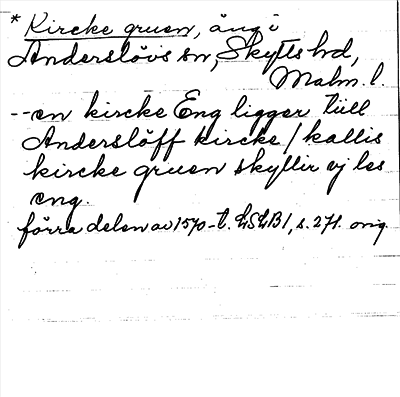 * Kircke gruen, äng i
Anderslövs sn, Skytts hd,
Malm. l.
--en kircke Eng ligger tüll
Anderslöff kircke / kallis
kircke gruen skyllir vj les
eng.
förra delen av 1570-t. LSLB1, s. 271. orig.